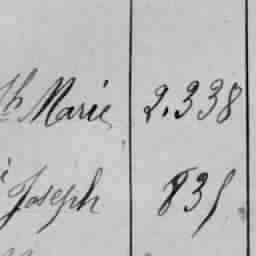 th Marie 2.338
Joseph 835